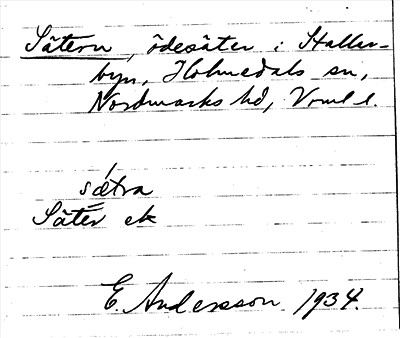 Sätern, ödesäter i Haller-
byn, Holmedals sn,
Nordmarks hd, Vrml l.
sætra
Säter ek
E. Andersson 1934.